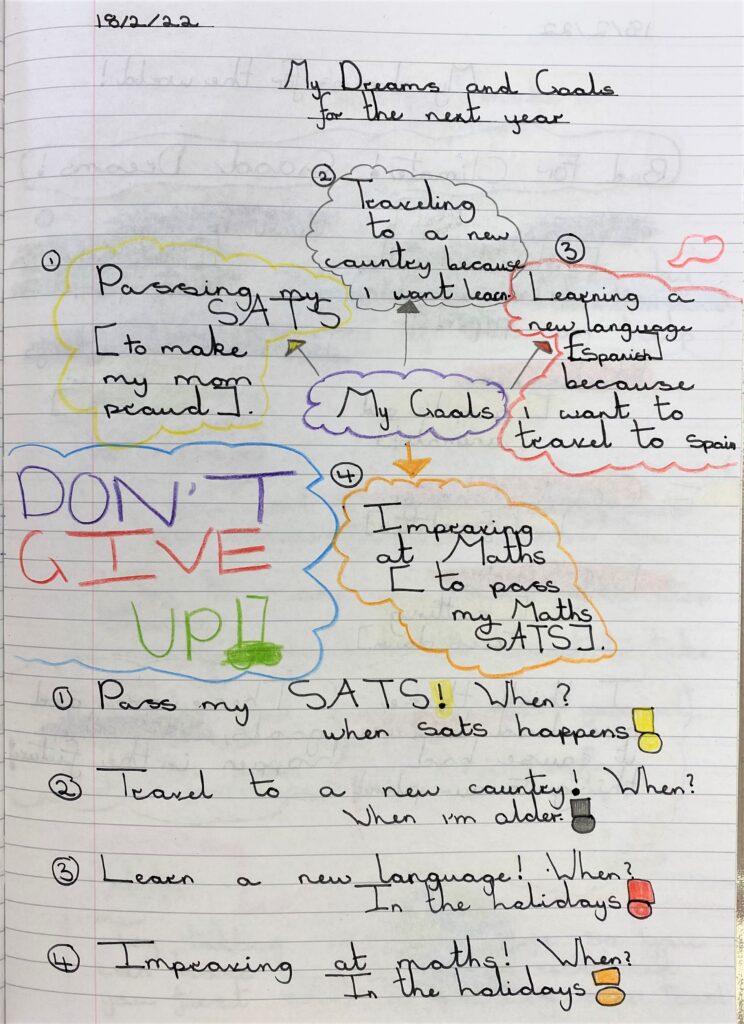 18/2/22
My Dreams and Goals
for the next year
②
Traveling
to a new
country because
i want learn
①
Passsing my
SATS
[to make
my mom
proud].
③
Learning a
new language
[Spanish]
because
i want to
travel to Spain
My Goals
DON'T
GIVE
UP!
④
Improving
at Maths
[to pass
my Maths
SATS].
① Pass my SATS! When?
when sats happens!
② Travel to a new country! When?
When i'm older.
③ Learn a new language! When?
In the holidays!
④ Improving at maths! When?
In the holidays!